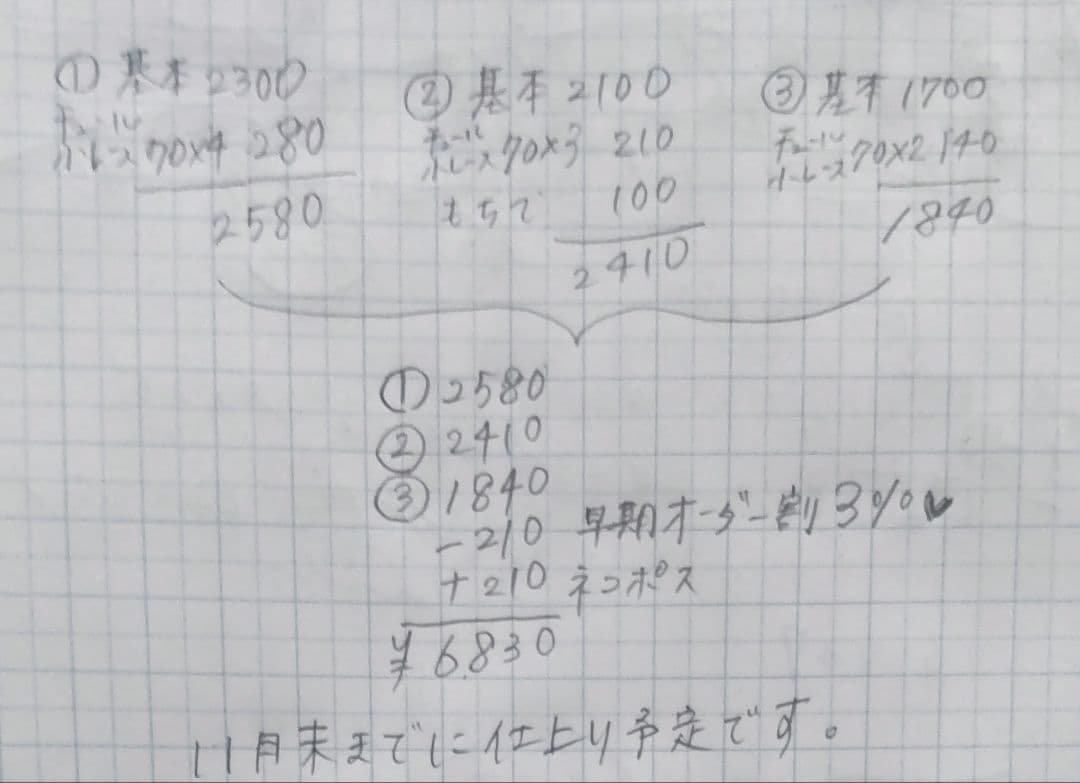 ① 基本 2300
チュール
ハーレース 70×4 280
2580
② 基本 2100
チュール
ハーレース 70×3 210
もちて 100
2410
③ 基本 1700
チュール
ハーレース 70×2 140
1840
① 2580
② 2410
③ 1840
-210 早期オーダー割 3%♥
+210 ネコポス
¥6.830
11月末までに仕上り予定です。